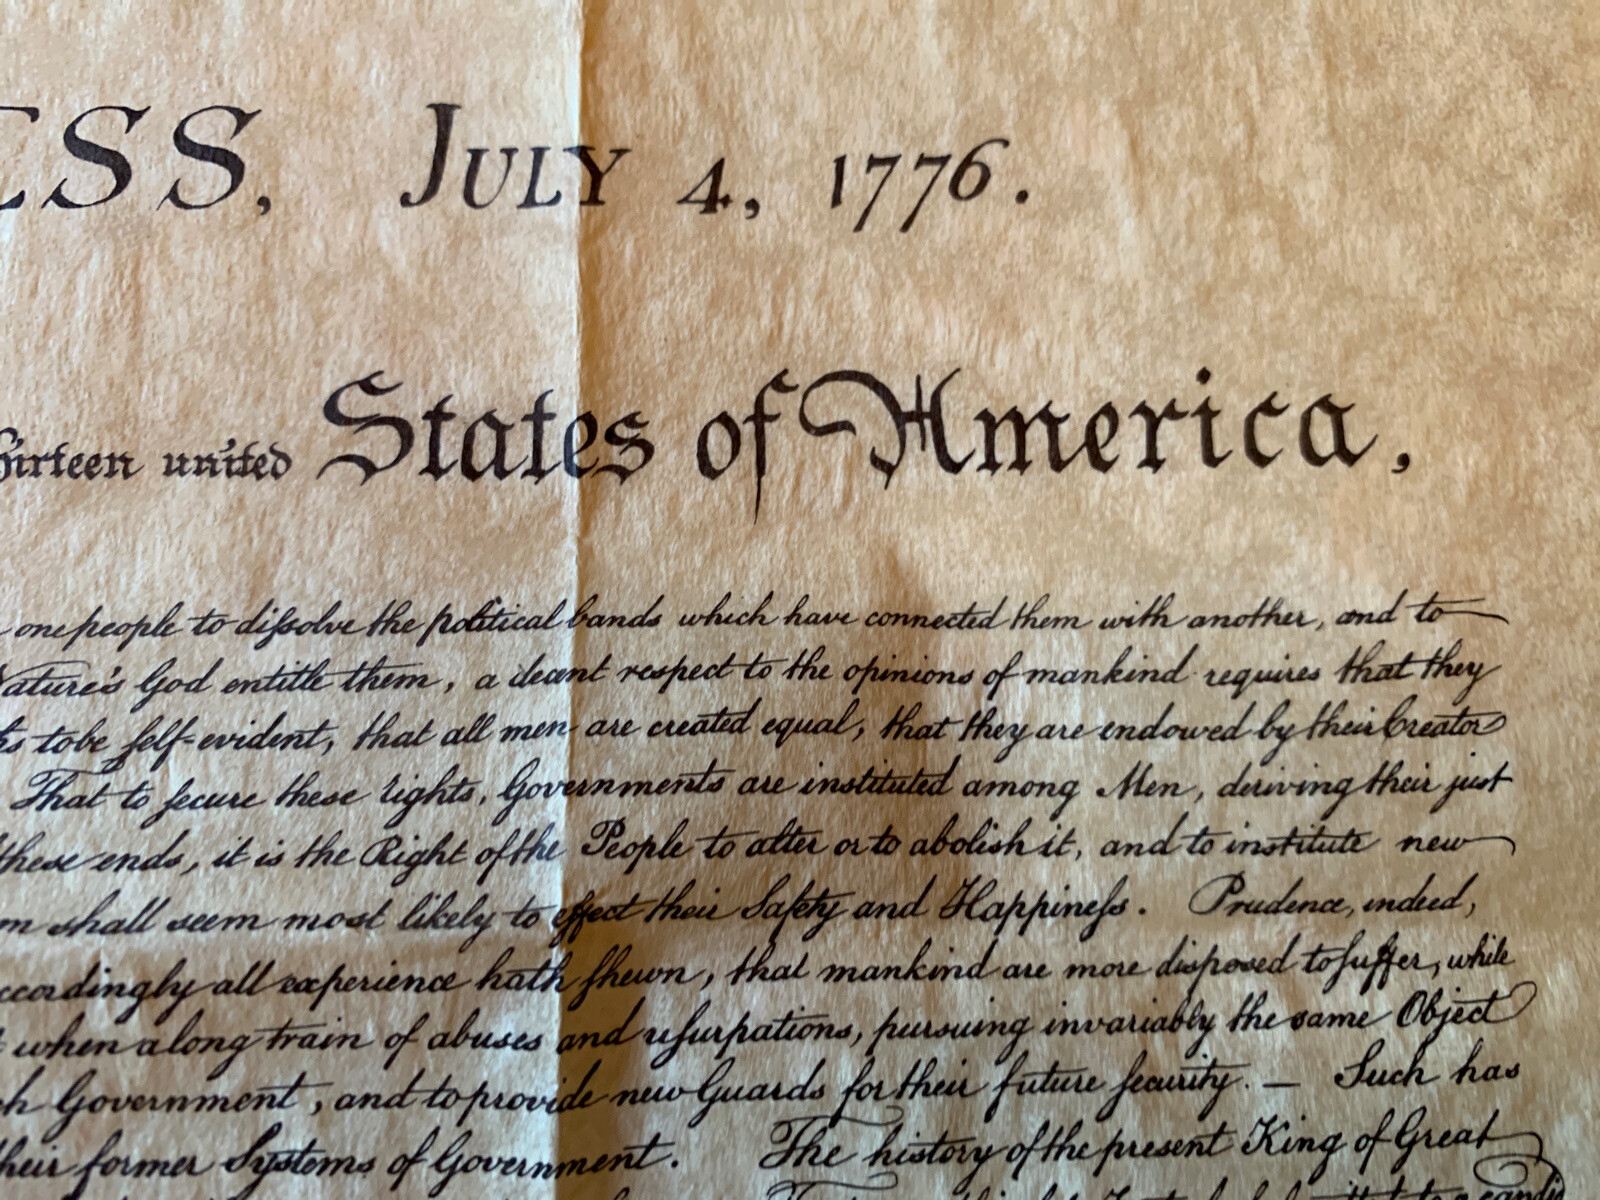 ESS, JULY 4, 1776.
hirteen united States of America,
one people to dissolve the political bands which have connected them with another, and to
Nature's God entitle them, a decent respect to the opinions of mankind requires that they
to be self-evident, that all men are created equal, that they are endowed by their Creator
That to secure these rights, Governments are instituted among Men, deriving their just
these ends, it is the Right of the People to alter or to abolish it, and to institute new
m shall seem most likely to effect their Safety and Happiness. Prudence, indeed,
ccordingly all experience hath shewn, that mankind are more disposed to suffer, while
when a long train of abuses and usurpations, pursuing invariably the same Object
ch Government, and to provide new Guards for their future security. — Such has
heir former Systems of Government. The history of the present King of Great